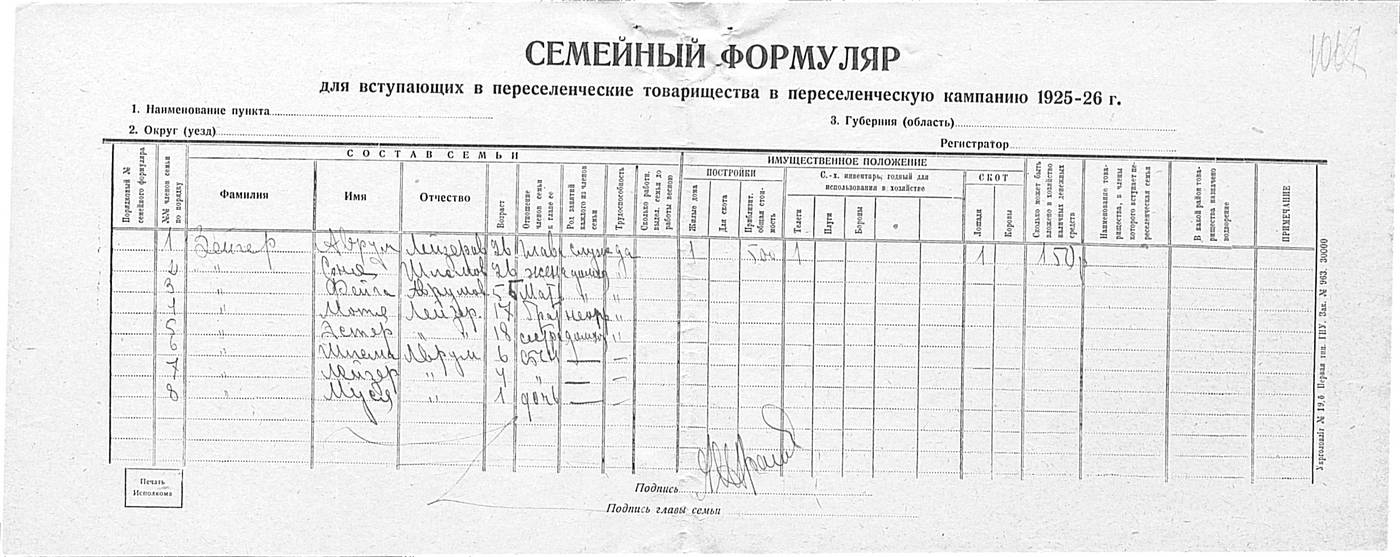 СЕМЕЙНЫЙ ФОРМУЛЯР
для вступающих в переселенческие товарищества в переселенческую кампанию 1925-26 г.
1. Наименование пункта
3. Губерния (область)
2. Округ (уезд)
Регистратор
СОСТАВ СЕМЬИ
ИМУЩЕСТВЕННОЕ ПОЛОЖЕНИЕ
Порядковый № семейного формуляра
№№ членов семьи по порядку
Фамилия
Имя
Отчество
Возраст
Отношение членов семьи к главе ее
Род занятий каждого из членов семьи
Трудоспособность
Сколько работн. выдел. семья до работы весною
ПОСТРОЙКИ
Жилые дома
Для скота
Приблизит. общая стоимость
С.-х. инвентарь, годный для использования в хозяйстве
Телеги
Плуги
Бороны
СКОТ
Лошади
Коровы
Сколько может быть вложено в хозяйство наличных денежных средств
Наименование товарищества, в члены которого вступает переселенческая семья
В какой район товарищества назначено водворение
ПРИМЕЧАНИЕ
1 Зейгер Аврум Лейзеров 26 глав служ да 1 500 1 1 150р
2 " Соня Шламов 26 жена домаш
3 " Фейга Аврумов 55 Мат " "
4 " Мотя Лейзер. 17 брат "
5 " Эстер " " 18 сестра домаш "
6 " Шлема Аврум 6 сын — —
7 Лейзер " 4 " — —
8 " Муся " 1 дочь — —
Печать
Исполкома
Подпись
Подпись главы семьи
Укрголовліт № 19,б Первая тип. ГПУ. Зак. № 963. 30000